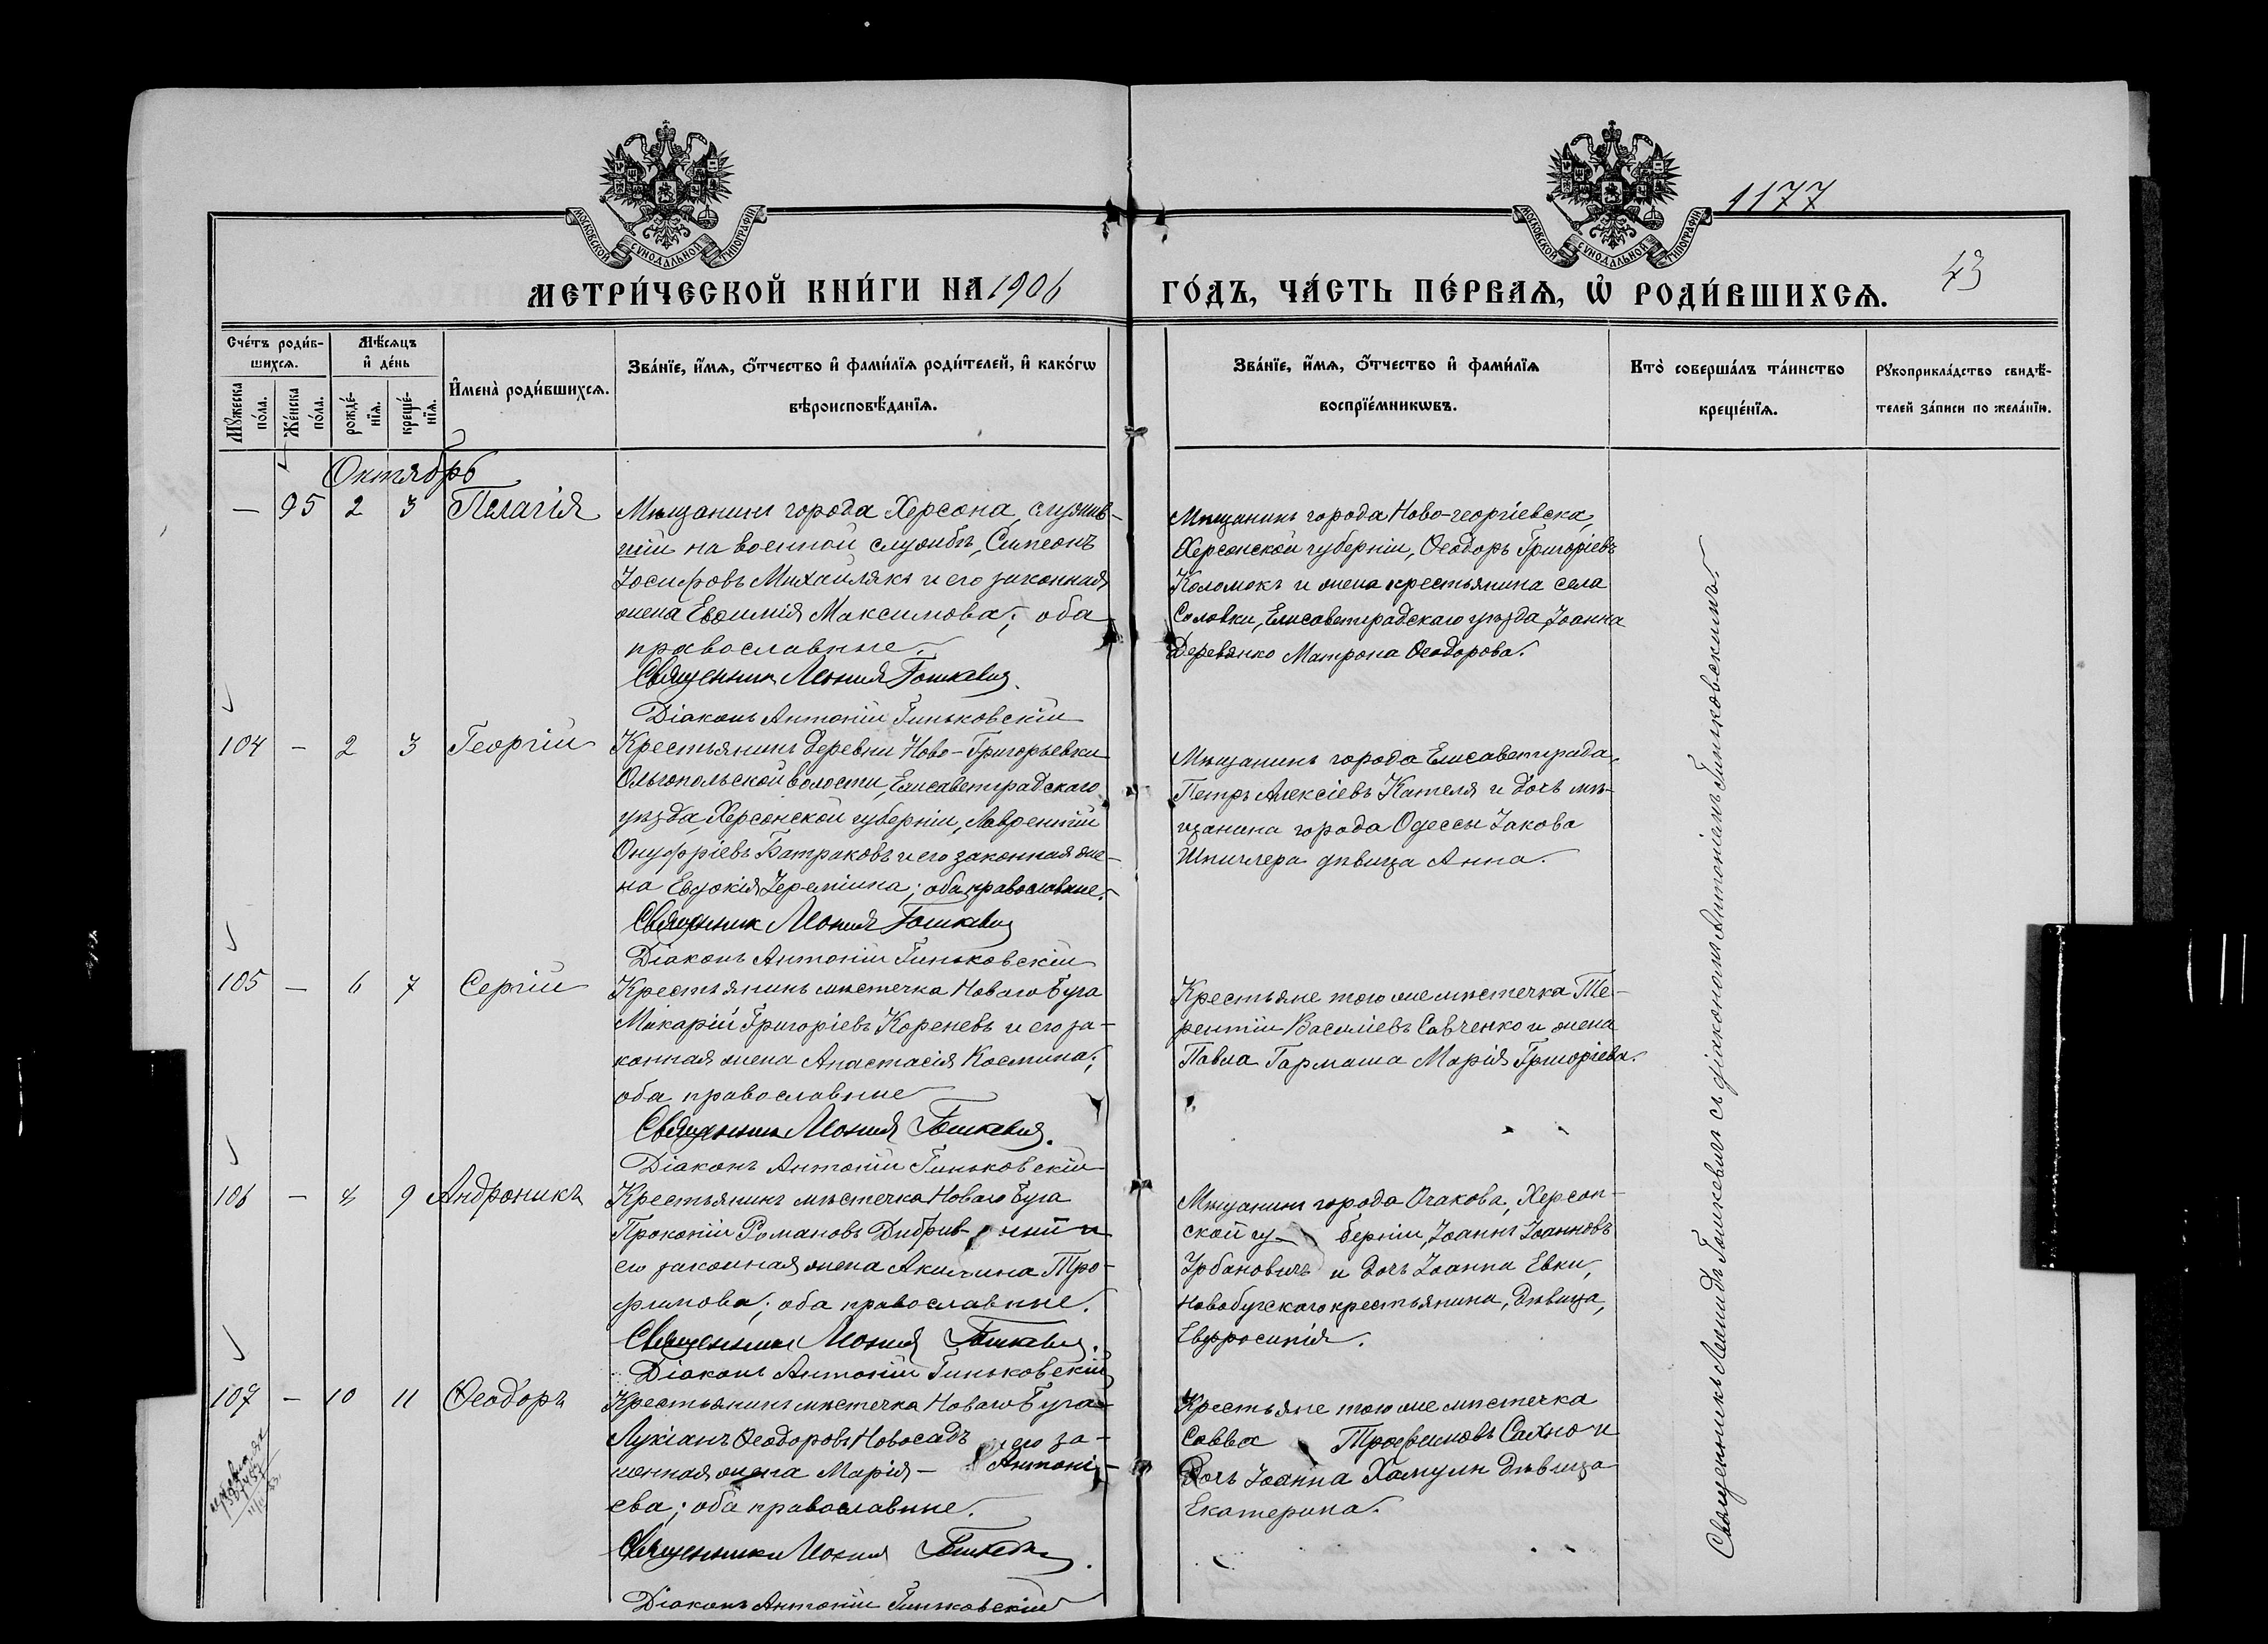 МОСКОВСКОЙ СУНОДАЛЬНОЙ ТИПОГРАФІИ
МОСКОВСКОЙ СУНОДАЛЬНОЙ ТИПОГРАФІИ
1177
МЕТРИ́ЧЕСКОЙ КНИ́ГИ НА 1906
ГО́ДЪ, ЧА́СТЬ ПЕ́РВАѦ, Ѡ҆ РОДИ́ВШИХСѦ.
43
Сче́тъ роди́в-
шихсѧ.
Мѣ́сѧцъ
и҆ де́нь
Мꙋ́жеска по́ла.
Же́нска по́ла.
рожде́-нїѧ.
креще́-нїѧ.
И҆мена̀ роди́вшихсѧ.
Зва́нїе, и҆́мѧ, ѻ҆́тчество и҆ фами́лїѧ роди́телей, и҆ како́гѡ
вѣроисповѣ́данїѧ.
Зва́нїе, и҆́мѧ, ѻ҆́тчество и҆ фами́лїѧ
воспрїе́мникѡвъ.
Кто̀ соверша́лъ та́инство
креще́нїѧ.
Рꙋкоприкла́дство свидѣ́-
телей за́писи по жела́нїю.
Октябрь
— 95 2 3 Пелагія
Мѣщанинъ города Херсона, служив-
шій на военной службѣ, Симеонъ
Іосифовъ Михайлякъ и его законная
жена Евѳимія Максимова; оба
православные.
Священникъ Леонидъ Гошкевичъ.
Діаконъ Антоній Гиньковскій
Мѣщанинъ города Ново-георгіевска,
Херсонской губерніи, Ѳеодоръ Григоріевъ
Коломокъ и жена крестьянина села
Соловки, Елисаветградскаго уѣзда, Іоанна
Деревянко Матрона Ѳеодорова.
104 — 2 3 Георгій
Крестьянинъ деревни Ново-Григорьевки
Ольгопольской волости, Елисаветградскаго
уѣзда, Херсонской губерніи, Лаврентій
Онуфріевъ Батраковъ и его законная же-
на Евдокія Іереміина; оба православные.
Священникъ Леонидъ Гошкевичъ
Діаконъ Антоній Гиньковскій
Мѣщанинъ города Елисаветграда,
Петръ Алексіевъ Кателя и дочь мѣ-
щанина города Одессы Іакова
дѣвица Анна.
105 — 6 7 Сергій
Крестьянинъ мѣстечка Новаго Буга
Макарій Григоріевъ Кореневъ и его за-
конная жена Анастасія Космина;
оба православные
Священникъ Леонидъ Гошкевичъ.
Діаконъ Антоній Гиньковскій
Крестьяне того же мѣстечка Те-
рентій Василіевъ Савченко и жена
Павла Гармаша Марія Григоріева.
106 — 9 Андроникъ
Крестьянинъ мѣстечка Новаго Буга
Прокопій Романовъ и
его законная жена Акилина Тро-
фимова; оба православные.
Священникъ Леонидъ Гошкевичъ.
Діаконъ Антоній Гиньковскій
Мѣщанинъ города Очакова, Херсон-
ской гу- берніи, Іоаннъ Іоанновъ
Урбановичъ и дочь Іоанна Евки,
Новобугскаго крестьянина, дѣвица,
Евфросинія.
107 — 10 11 Ѳеодоръ
Крестьянинъ мѣстечка Новаго Буга
Лукіанъ Ѳеодоровъ Новосадъ и его за-
конная жена Марія — Антоні-
ева; оба православные.
Священникъ Леонидъ Гошкевичъ.
Діаконъ Антоній Гиньковскій
Крестьяне того же мѣстечка
Савва Трофимовъ Сахно и
дочь Іоанна Хамулы дѣвица
Екатерина.
Священникъ Леонидъ Гошкевичъ съ діакономъ Антоніемъ Гиньковскимъ.